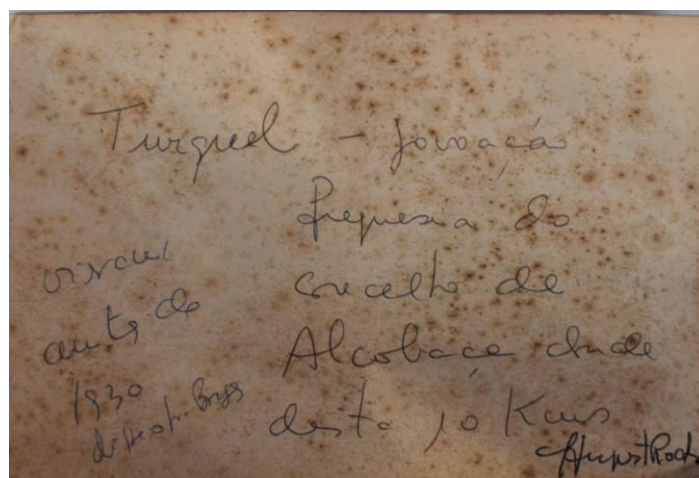 Turquel - povoação
freguesia do
concelho de
Alcobaça donde
dista 10 Kms
antes de
1930